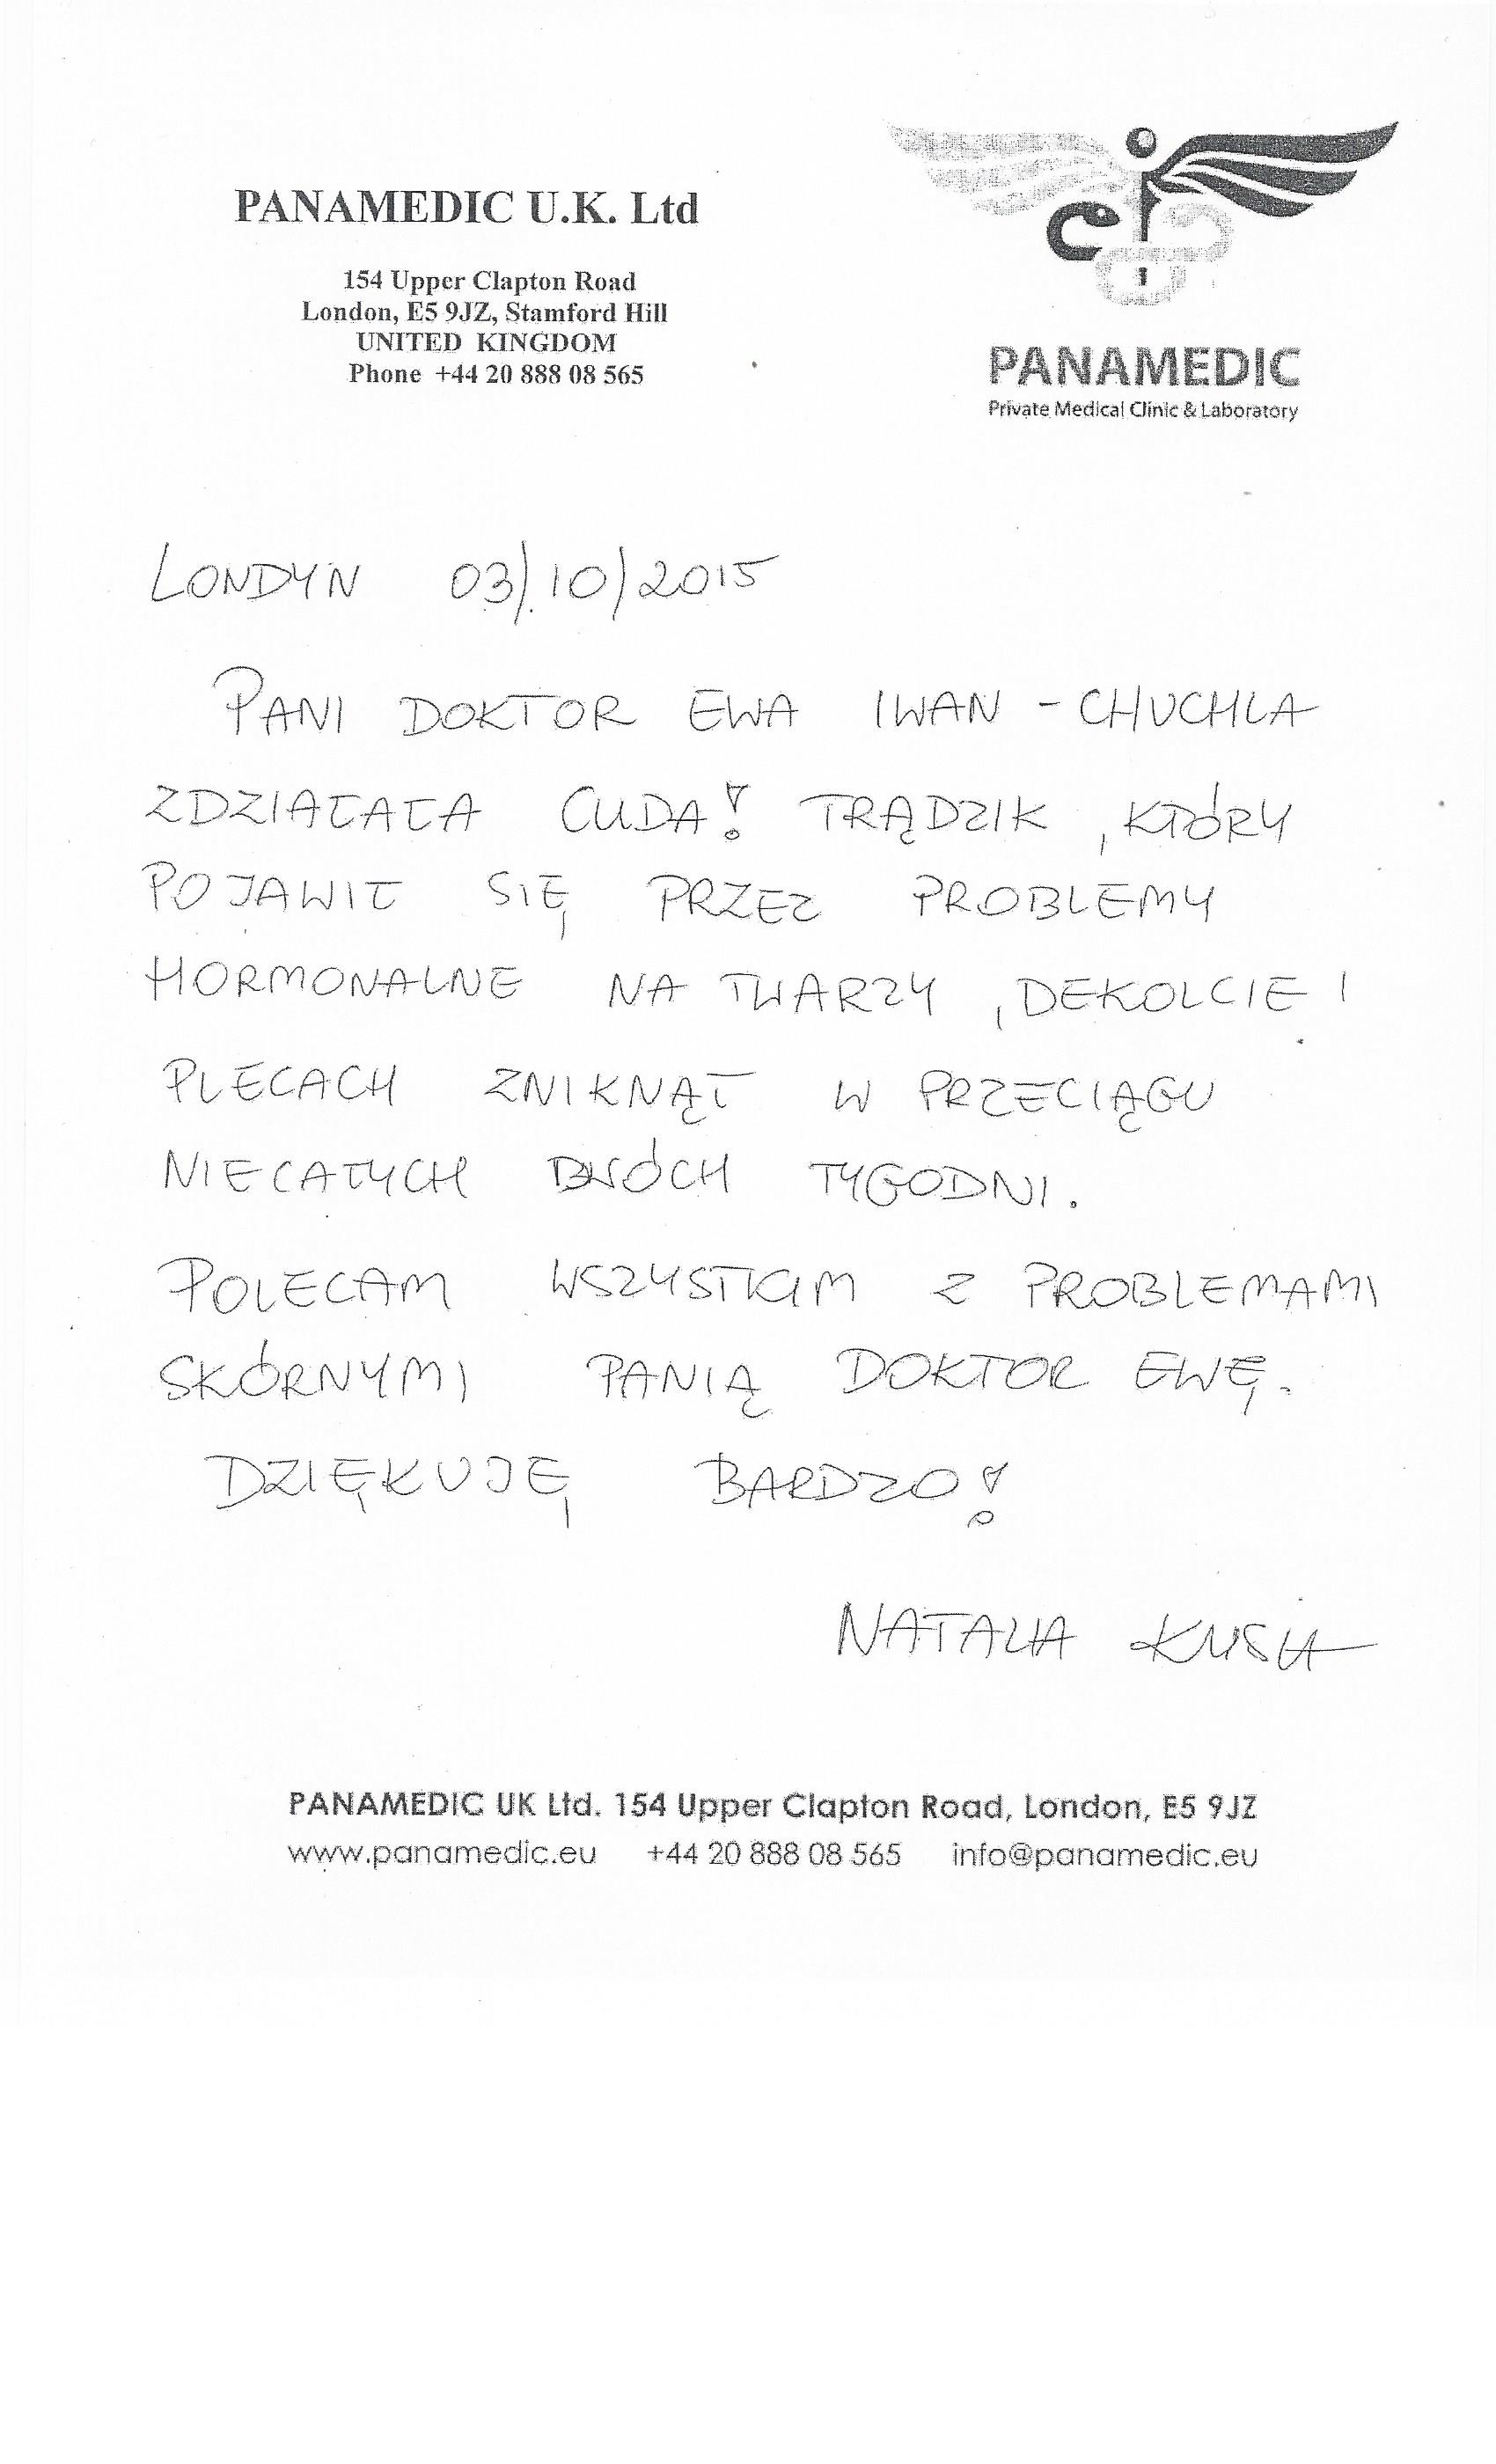 PANAMEDIC U.K. Ltd
154 Upper Clapton Road
London, E5 9JZ, Stamford Hill
UNITED KINGDOM
Phone +44 20 888 08 565
PANAMEDIC
Private Medical Clinic & Laboratory
LONDYN 03/10/2015
PANI DOKTOR EWA IWAN - CHUCHLA
ZDZIAŁAŁA CUDA! TRĄDZIK, KTÓRY
POJAWIŁ SIĘ PRZEZ PROBLEMY
HORMONALNE NA TWARZY, DEKOLCIE I
PLECACH ZNIKNĄŁ W PRZECIĄGU
NIECAŁYCH DWÓCH TYGODNI.
POLECAM WSZYSTKIM Z PROBLEMAMI
SKÓRNYMI PANIĄ DOKTOR EWĘ.
DZIĘKUJĘ BARDZO!
NATALIA
PANAMEDIC UK Ltd. 154 Upper Clapton Road, London, E5 9JZ
www.panamedic.eu +44 20 888 08 565 info@panamedic.eu